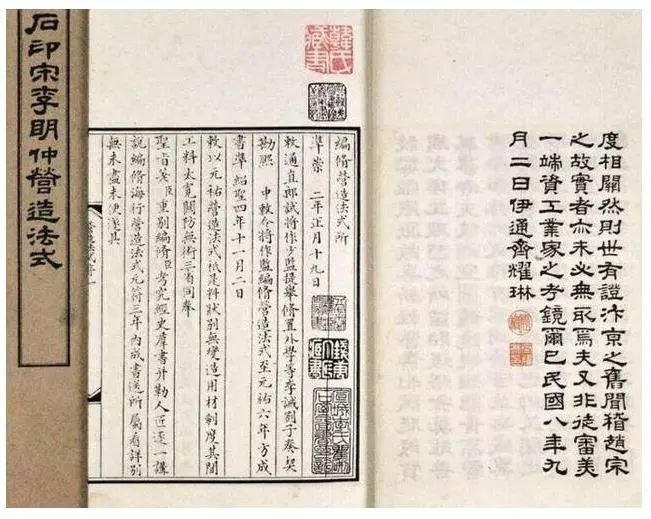 石印宋李明仲營造法式
韓氏藏書
度相關然則世有證汴京之舊聞稽趙宋
之故實者亦未必無取焉夫又非徒審美
一端資工業家之考鏡爾已民國八年九
月二日伊通齊耀琳
編修營造法式所
準崇 二年正月十九日
敕通直郎試將作少監提舉修置外學等李誡劄子奏契
勘熙 中敕令將作監編修營造法式至元祐六年方成
書準 紹聖四年十一月二日
敕以元祐營造法式祇是料狀別無變造用材制度其間
工料太寬關防無術三省同奉
聖旨差臣重別編修臣考究經史羣書并勒人匠逐一講
說編修海行營造法式元符三年內成書送所屬看詳別
無未盡未便遂具